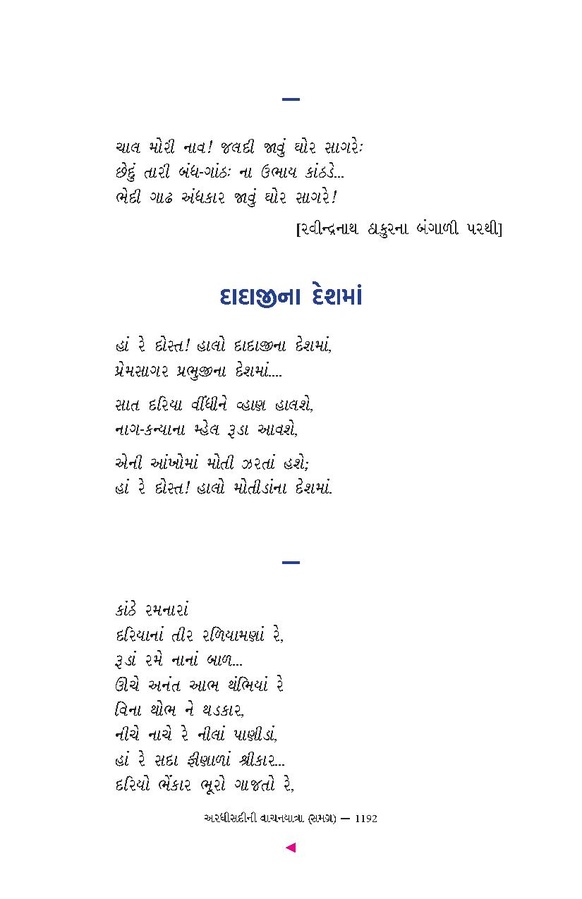 —
ચાલ મોરી નાવ! જલદી જાવું ઘોર સાગરેઃ
છેદું તારી બંધ-ગાંઠઃ ના ઉભાય કાંઠડે...
ભેદી ગાઢ અંધકાર જાવું ઘોર સાગરે!
[રવીન્દ્રનાથ ઠાકુરના બંગાળી પરથી]
દાદાજીના દેશમાં
હાં રે દોસ્ત! હાલો દાદાજીના દેશમાં,
પ્રેમસાગર પ્રભુજીના દેશમાં....
સાત દરિયા વીંધીને વ્હાણ હાલશે,
નાગ-કન્યાના મ્હેલ રૂડા આવશે,
એની આંખોમાં મોતી ઝરતાં હશે;
હાં રે દોસ્ત! હાલો મોતીડાંના દેશમાં.
—
કાંઠે રમનારાં
દરિયાનાં તીર રળિયામણાં રે,
રૂડાં રમે નાનાં બાળ...
ઊંચે અનંત આભ થંભિયાં રે
વિના થોભ ને થડકાર,
નીચે નાચે રે નીલાં પાણીડાં,
હાં રે સદા ફીણાળાં શ્રીકાર...
દરિયો ભેંકાર ભૂરો ગાજતો રે,
અરધીસદીની વાચનયાત્રા (સમગ્ર) — 1192